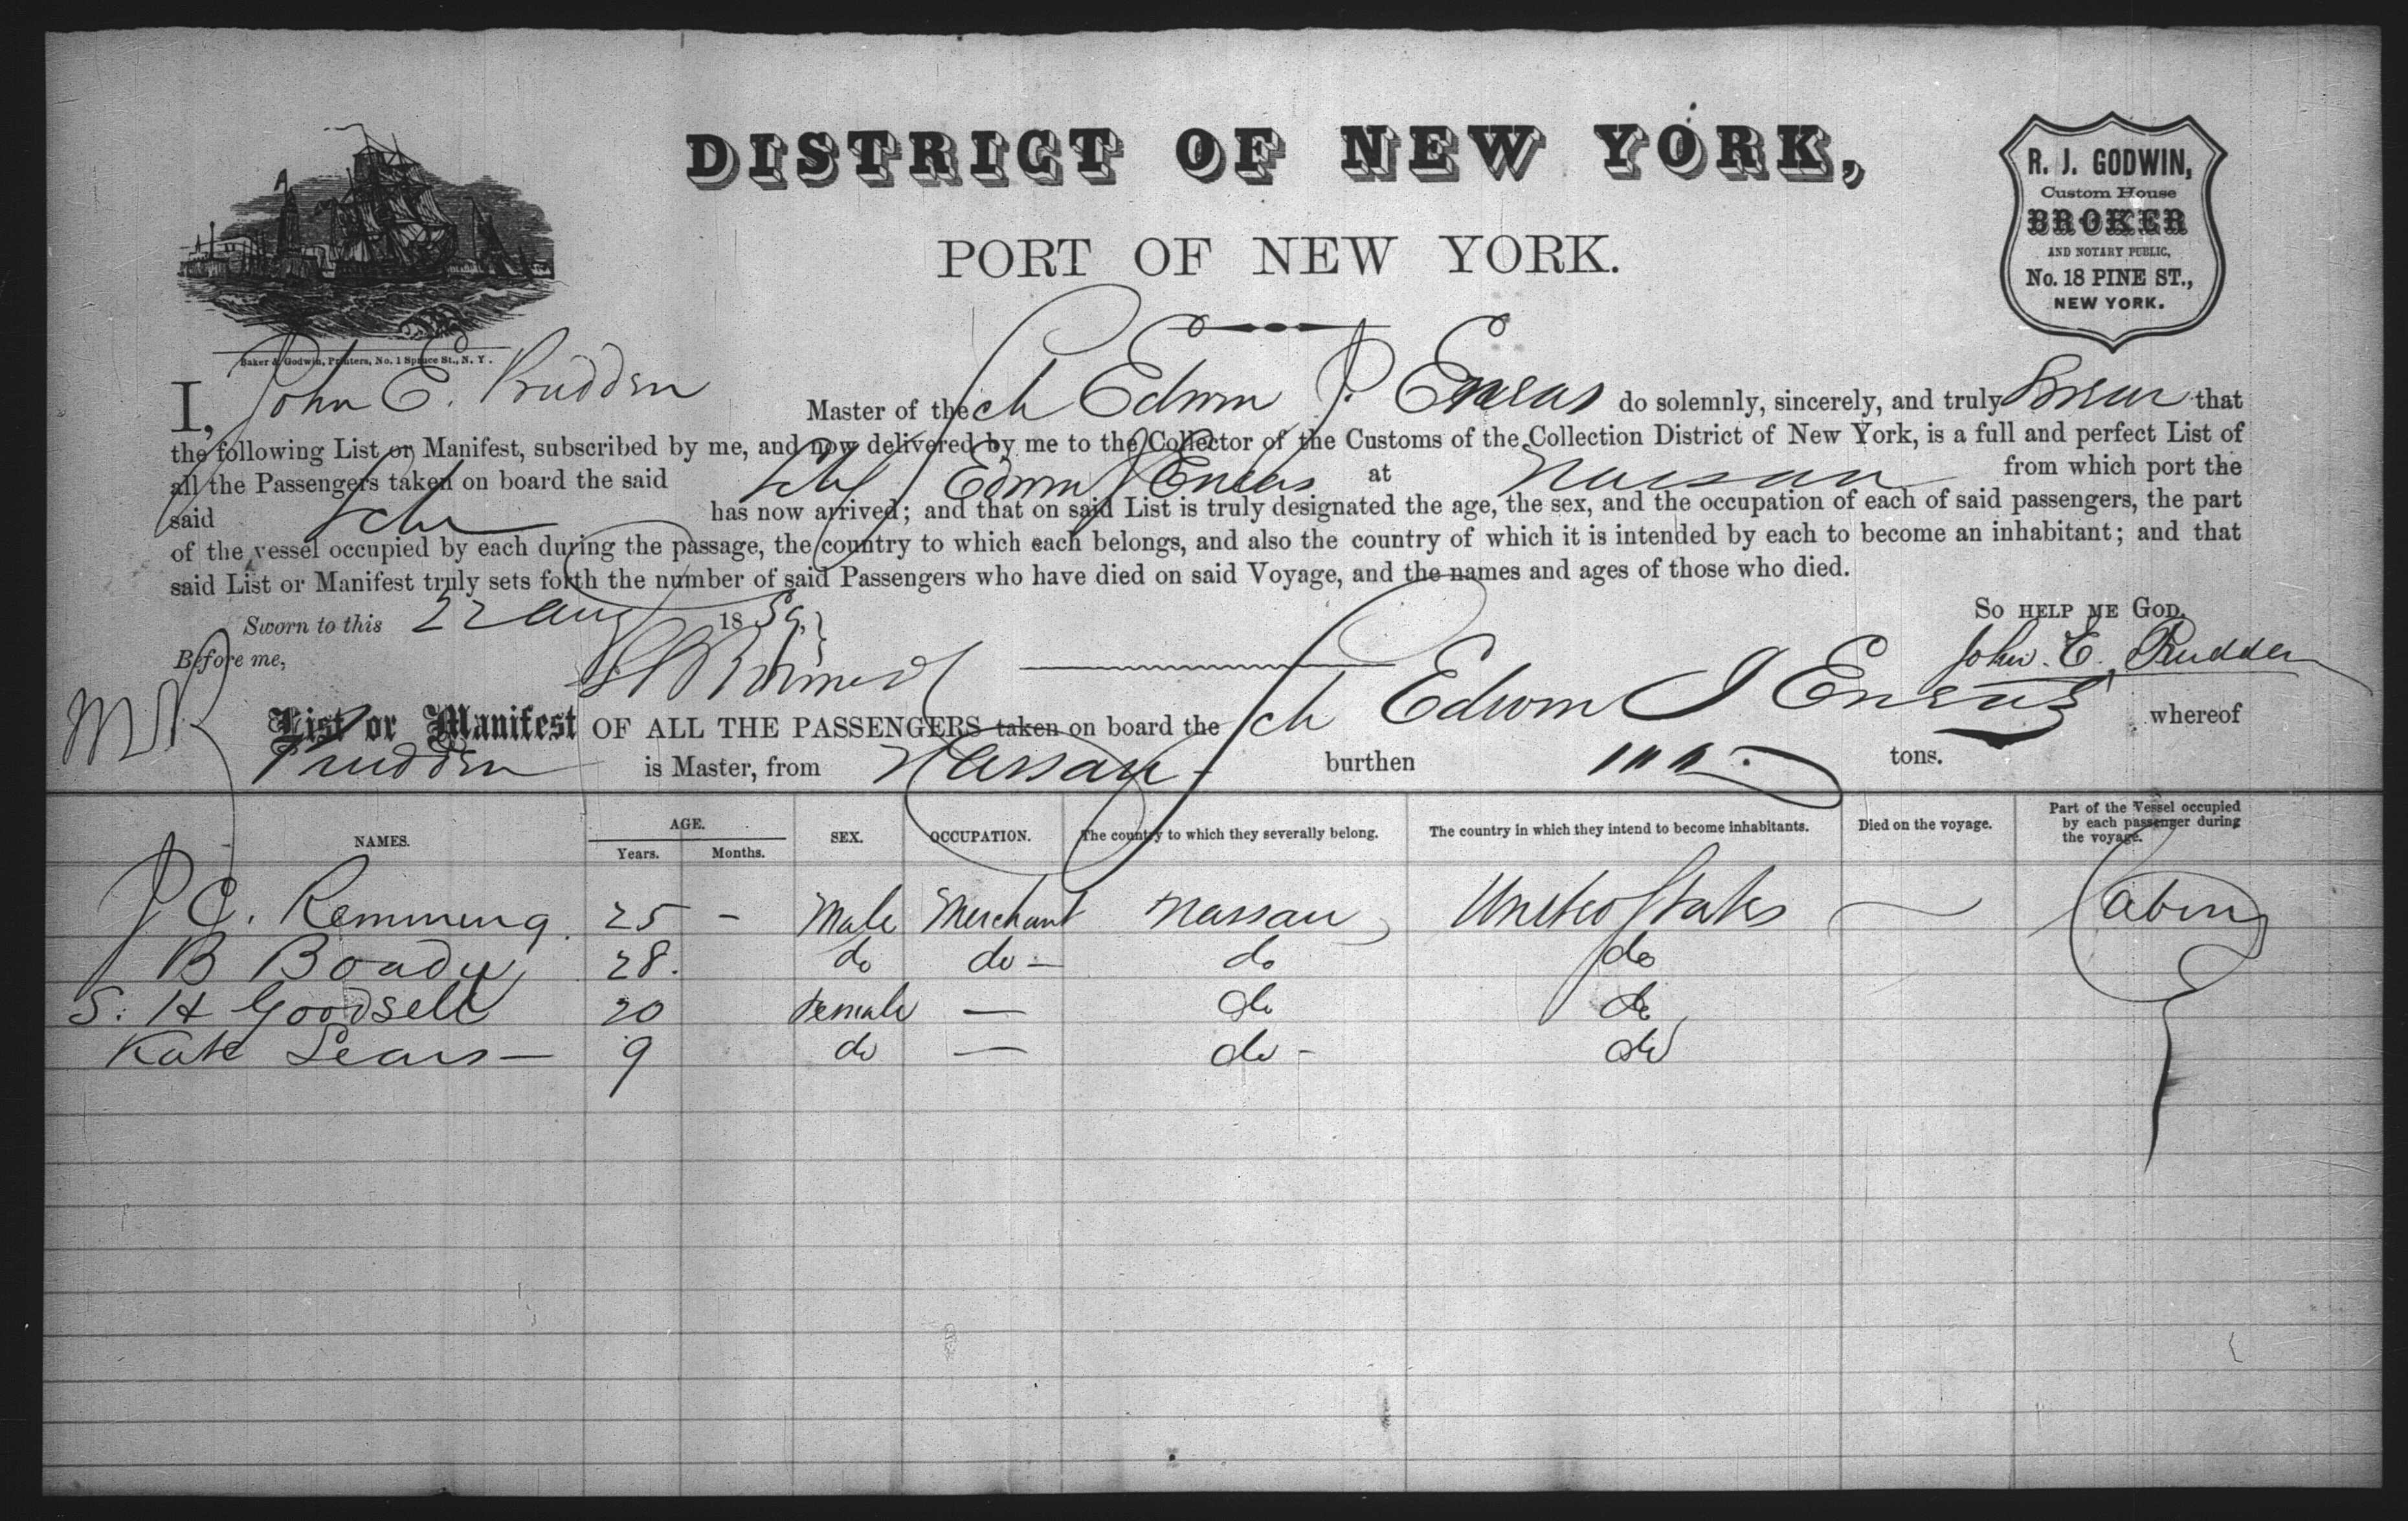 DISTRICT OF NEW YORK,
PORT OF NEW YORK.
R. J. GODWIN,
Custom House
BROKER
AND NOTARY PUBLIC,
No. 18 PINE ST.,
NEW YORK.
Baker & Godwin, Printers, No. 1 Spruce St., N. Y.
I, John E. Prudden Master of the Sch Edwin J. Eneas do solemnly, sincerely, and truly Swear that
the following List or Manifest, subscribed by me, and now delivered by me to the Collector of the Customs of the Collection District of New York, is a full and perfect List of
all the Passengers taken on board the said Sch Edwin J Eneas at Nassau from which port the
said Sch has now arrived; and that on said List is truly designated the age, the sex, and the occupation of each of said passengers, the part
of the vessel occupied by each during the passage, the country to which each belongs, and also the country of which it is intended by each to become an inhabitant; and that
said List or Manifest truly sets forth the number of said Passengers who have died on said Voyage, and the names and ages of those who died.
Sworn to this 22 Aug 1859, SO HELP ME GOD.
Before me, John. E. Prudden
List or Manifest OF ALL THE PASSENGERS taken on board the Sch Edwin J Eneas whereof
Prudden is Master, from Nassau burthen tons.
NAMES. AGE. Years. Months. SEX. OCCUPATION. The country to which they severally belong. The country in which they intend to become inhabitants. Died on the voyage. Part of the Vessel occupied by each passenger during the voyage.
J C. Remming 25 - Male Merchant Nassau United States Cabin
B Boady 28. do do - do do
S. H Goodsell 20 Female — do do
Kate Sears — 9 do — do - do